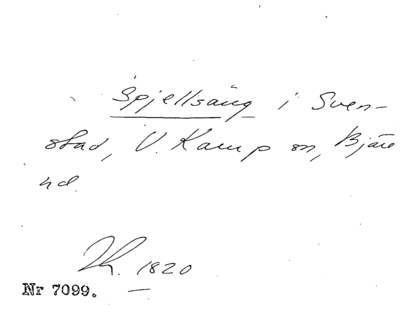 Spjellsäng i Sven-
stad, V. Kärup sn, Bjäre
hd.
Th. 1820
Nr 7099.